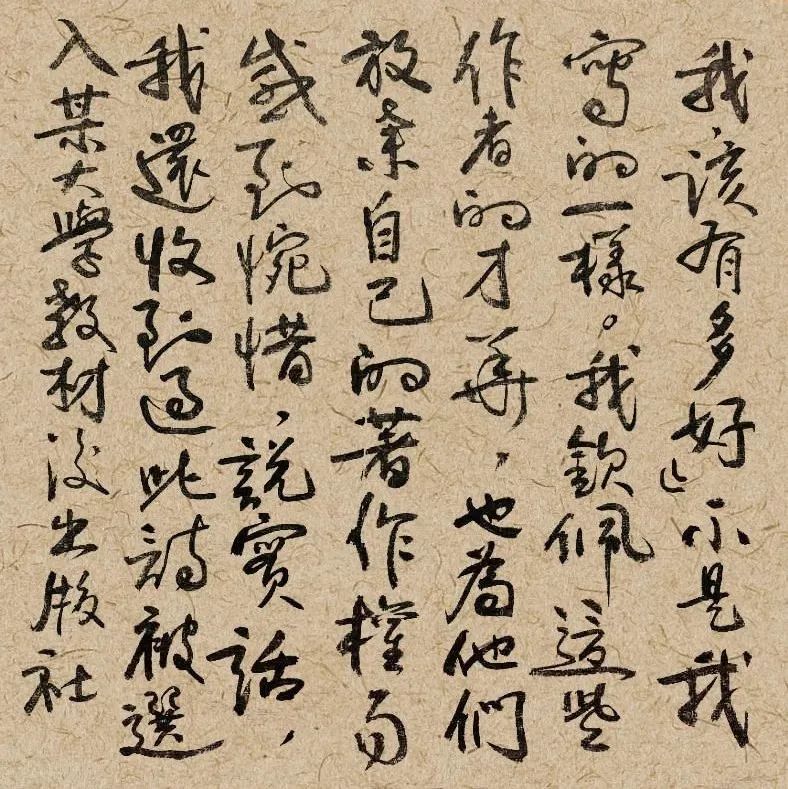 我該有多好」不是我
寫的一樣。我欽佩這些
作者的才華,也為他們
放棄自己的著作權而
感到惋惜、說實話,
我還收到過此詩被選
入某大學教材後出版社